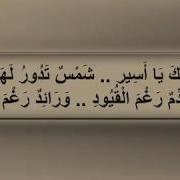 ـكَ يَا أَسِير .. شَمْسٌ تَدُورُ لَهَـ
ـدَمٌ رَغْمَ الْقُيُودِ .. وَرَائِدٌ رَغْمَ